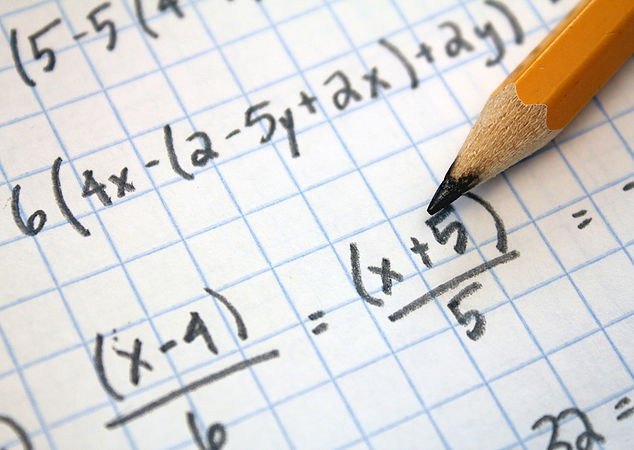 (5-5(4
6(4x-(2-5y+2x)+2y)
(x-4)/6 = (x+5)/5 =
32 =